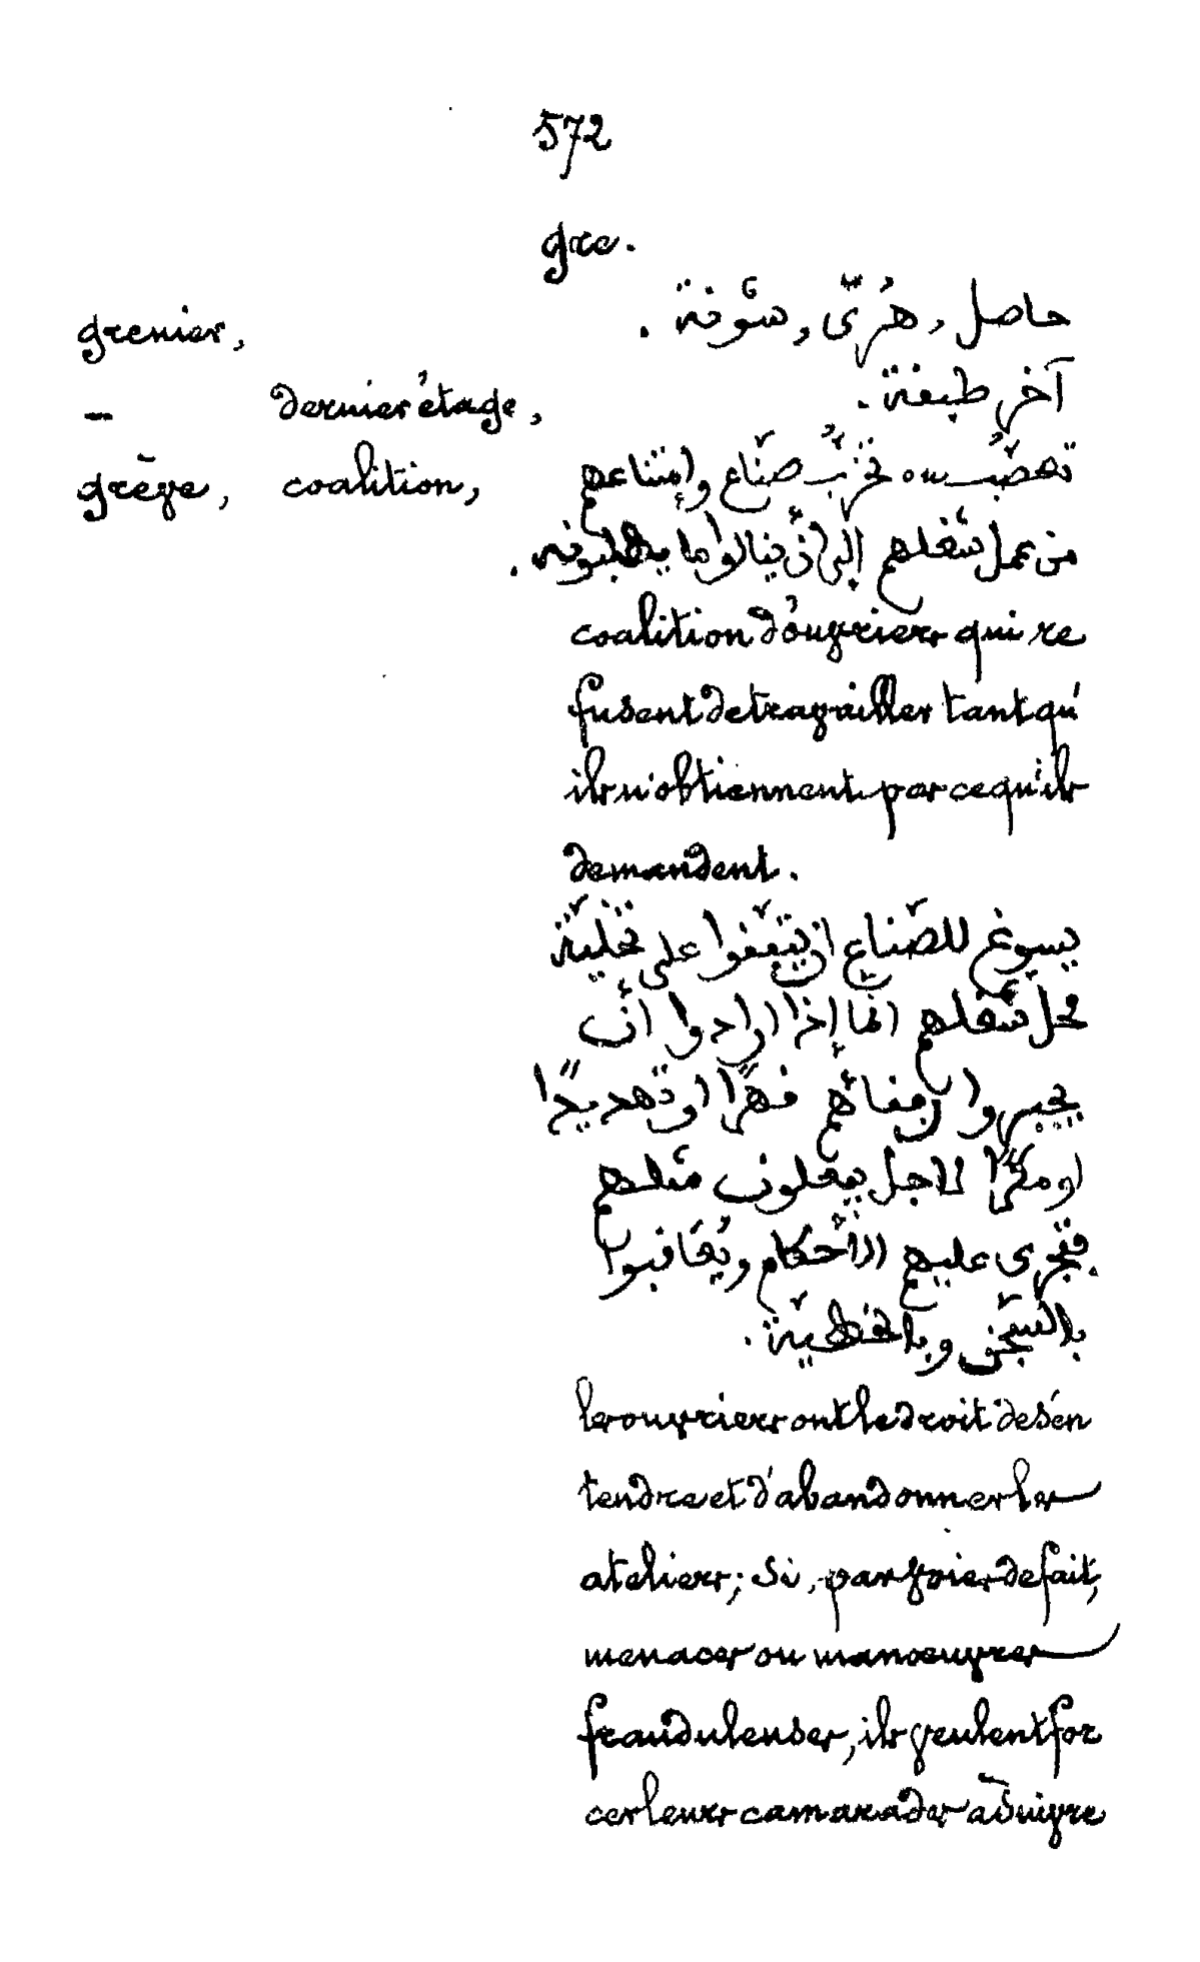 572
gre.
grenier, حاصل, هُرّى, شونة.
— dernier étage, آخر طبقة.
grève, coalition, تعصّب ou تحزّب صنّاع وإمتناعهم
من عمل شغلهم إلى أن ينالوا ما يطلبونه.
coalition d'ouvriers qui re
fusent de travailler tant qu'
ils n'obtiennent pas ce qu'ils
demandent.
يسوغ للصّناع ان يتّفقوا على تخليّة
محل شغلهم انّما إذا ارادوا أن
يجبروا رفقائهم قهرًا او تهديدًا
او مكرًا لاجل يفعلون مثلهم
فتجرى عليهم الأحكام ويُعَاقبوا
بالسّجن وبالخطيّة.
les ouvriers ont le droit de s'en
tendre et d'abandonner les
ateliers; si, par voies de fait,
menaces ou manœuvres
frauduleuses, ils veulent for
cer leurs camarades à suivre